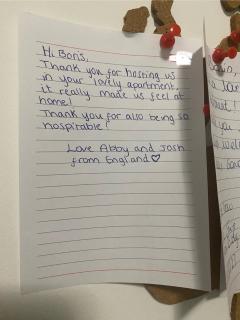 Hi Boris,
Thank you for hosting us
in your lovely apartment,
it really made us feel at
home!
Thank you for also being so
hospitable!
Love Abby and Josh
from England♡